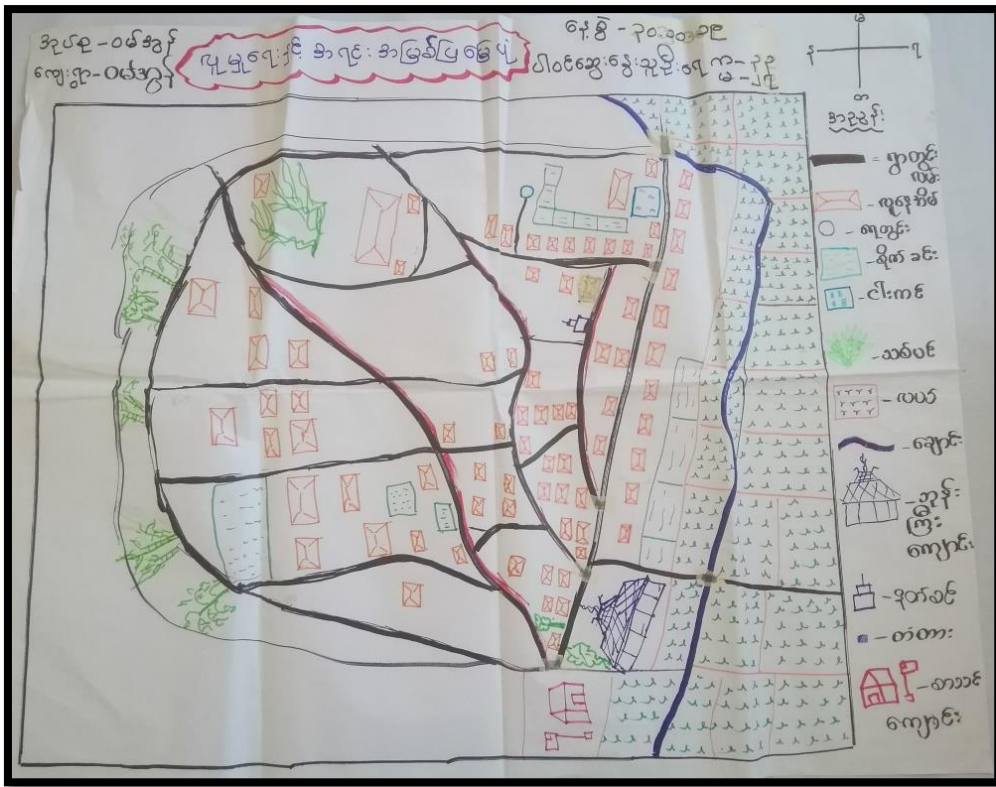 အုပ်စု - ဝမ်အွန်
ကျေးရွာ - ဝမ်အွန်
လူမှုရေးနှင့် အရင်းအမြစ်ပြမြေပုံ
နေ့စွဲ - ၃၀.၁၀.၁၉
ပါဝင်ဆွေးနွေးသူဦးရေ ကျ - ၃၃
မ - ၂၇
မ
န
ရ
တ
အညွှန်း
= ရွာတွင်း
လမ်း
- လူနေအိမ်
- ရေတွင်း
- စိုက်ခင်း
- ငါးကန်
- သစ်ပင်
- လယ်
- ချောင်း
- ဘုန်း
ကြီး
ကျောင်း
- နတ်စင်
- တံတား
- စာသင်
ကျောင်း